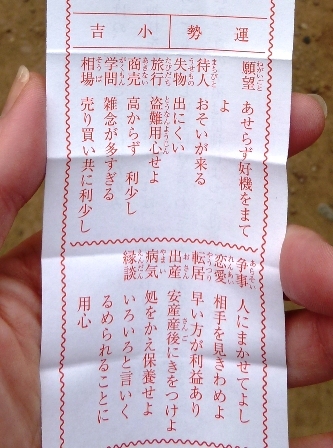 運勢 小吉
願望 あせらず好機をまて
よ
待人 おそいが来る
失物 出にくい
旅行 盗難用心せよ
商売 高からず 利少し
学問 雑念が多すぎる
相場 売り買い共に利少し
争事 人にまかせてよし
恋愛 相手を見きわめよ
転居 早い方が利益あり
出産 安産産後にきをつけよ
病気 処をかえ保養せよ
縁談 いろいろと言いく
るめられることに
用心